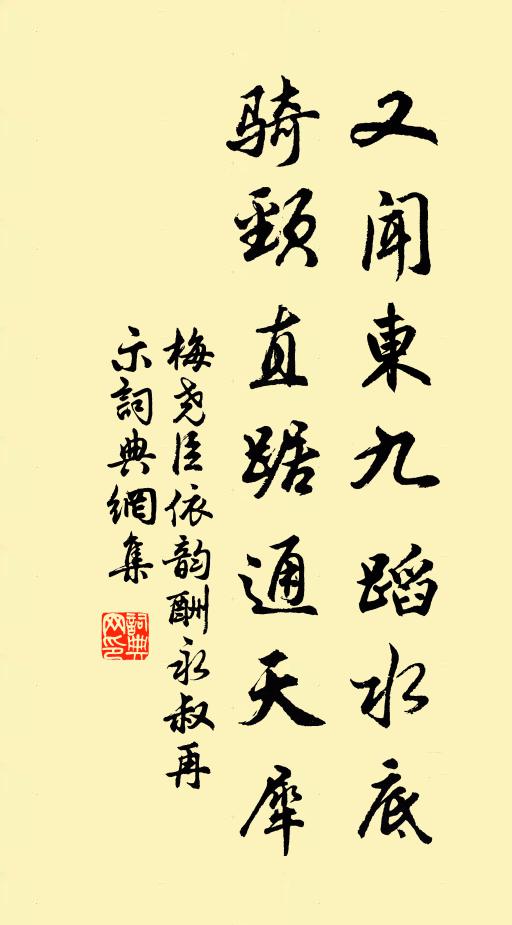 又聞東九蹈水底
騎頸直踞通天犀
梅堯臣依韵酬永叔再
示詞典網集
詞典网印